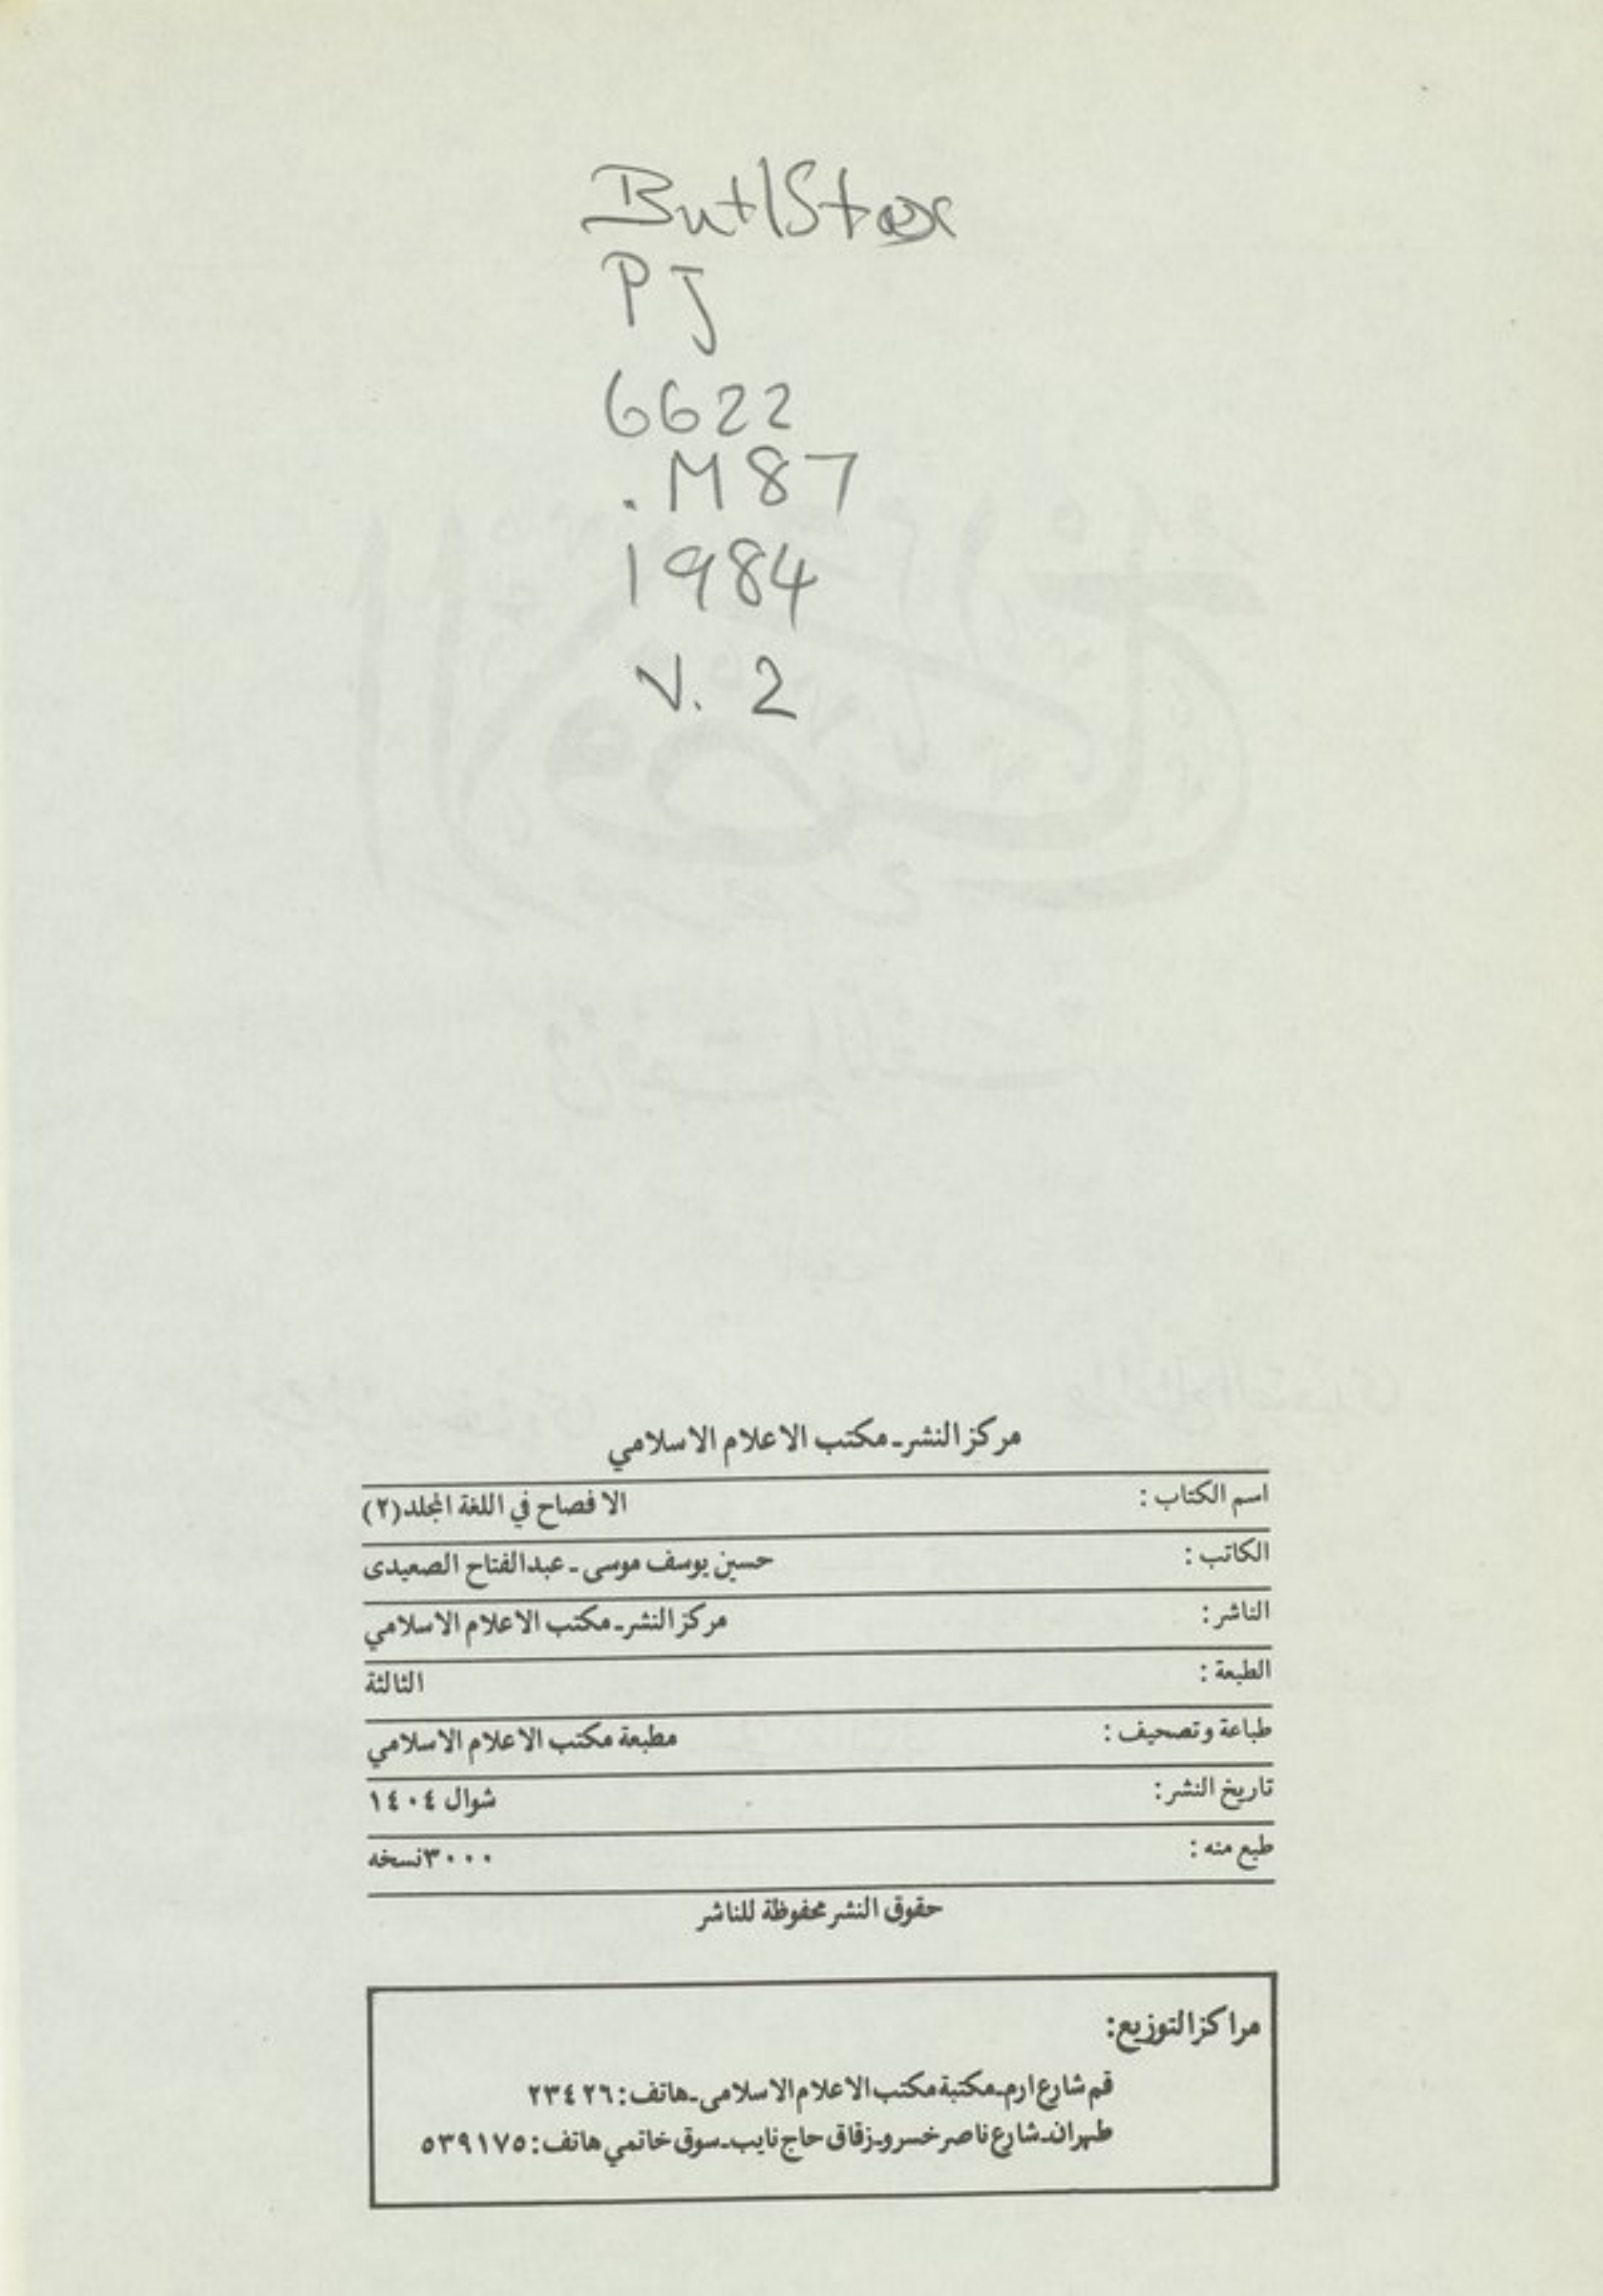 ButlStax
PJ
6622
.M87
1984
V. 2
مركز النشر ـ مكتب الاعلام الاسلامي
اسم الكتاب : الافصاح في اللغة المجلد (٢)
الكاتب : حسين يوسف موسى ـ عبدالفتاح الصعيدى
الناشر : مركز النشر ـ مكتب الاعلام الاسلامي
الطبعة : الثالثة
طباعة وتصحيف : مطبعة مكتب الاعلام الاسلامي
تاريخ النشر : شوال ١٤٠٤
طبع منه : ٣٠٠٠ نسخه
حقوق النشر محفوظة للناشر
مراكز التوزيع:
قم شارع ارم ـ مكتبة مكتب الاعلام الاسلامى ـ هاتف : ٢٣٤٢٦
طهران ـ شارع ناصر خسرو ـ زقاق حاج نايب ـ سوق خاتمي هاتف : ٥٣٩١٧٥